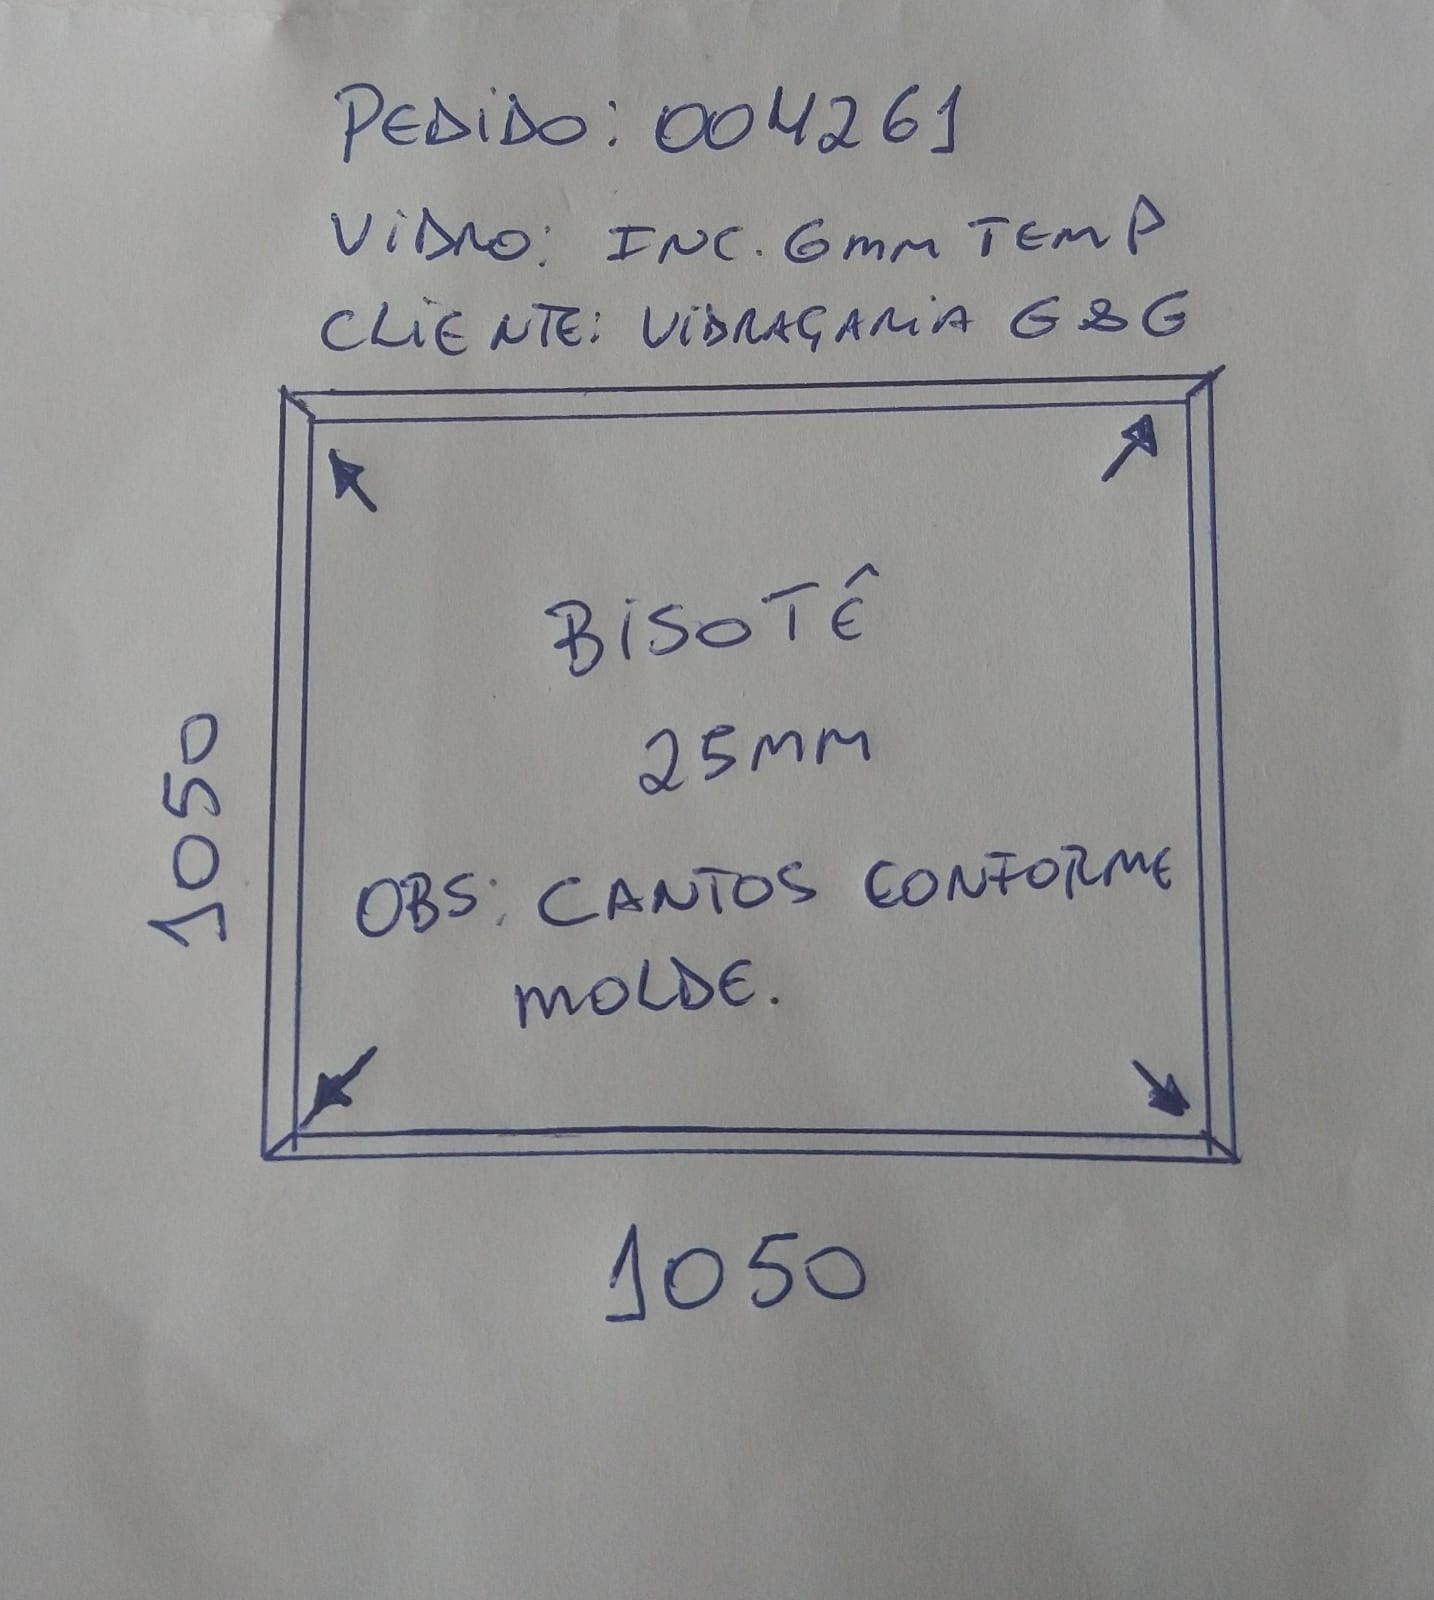 PEDIDO: 004261
VIDRO: INC. 6mm TEMP
CLIENTE: VIDRAÇARIA G&G
BISOTÊ
25MM
1050
OBS: CANTOS CONFORME
MOLDE.
1050